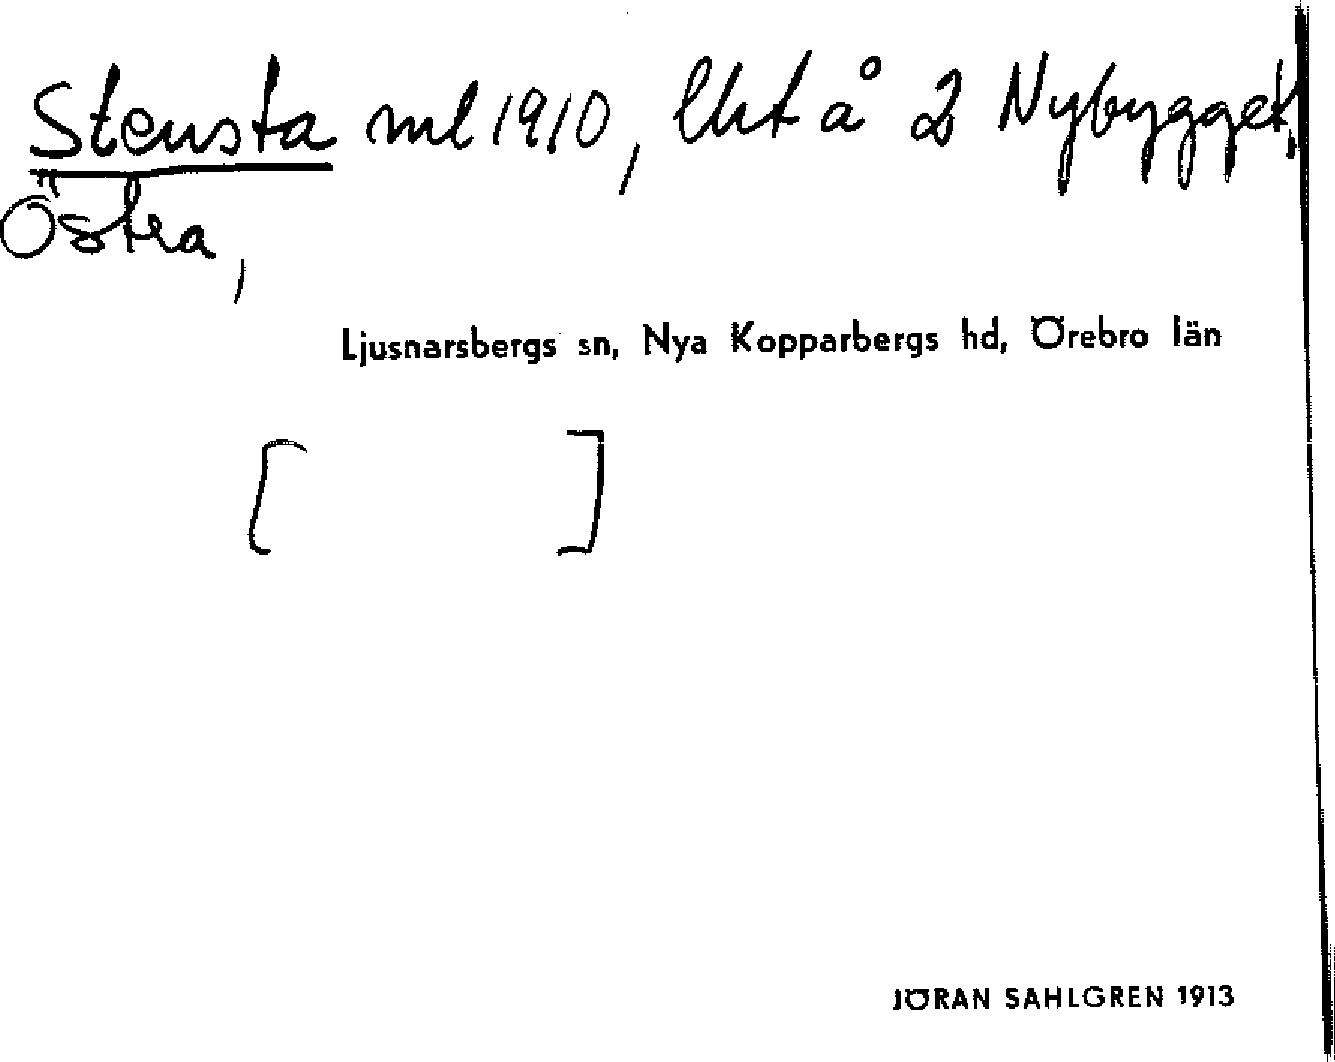 Stensta ml 1910, lht å 2 Nybygget,
Östra,
Ljusnarsbergs sn, Nya Kopparbergs hd, Örebro län
[ ]
JÖRAN SAHLGREN 1913